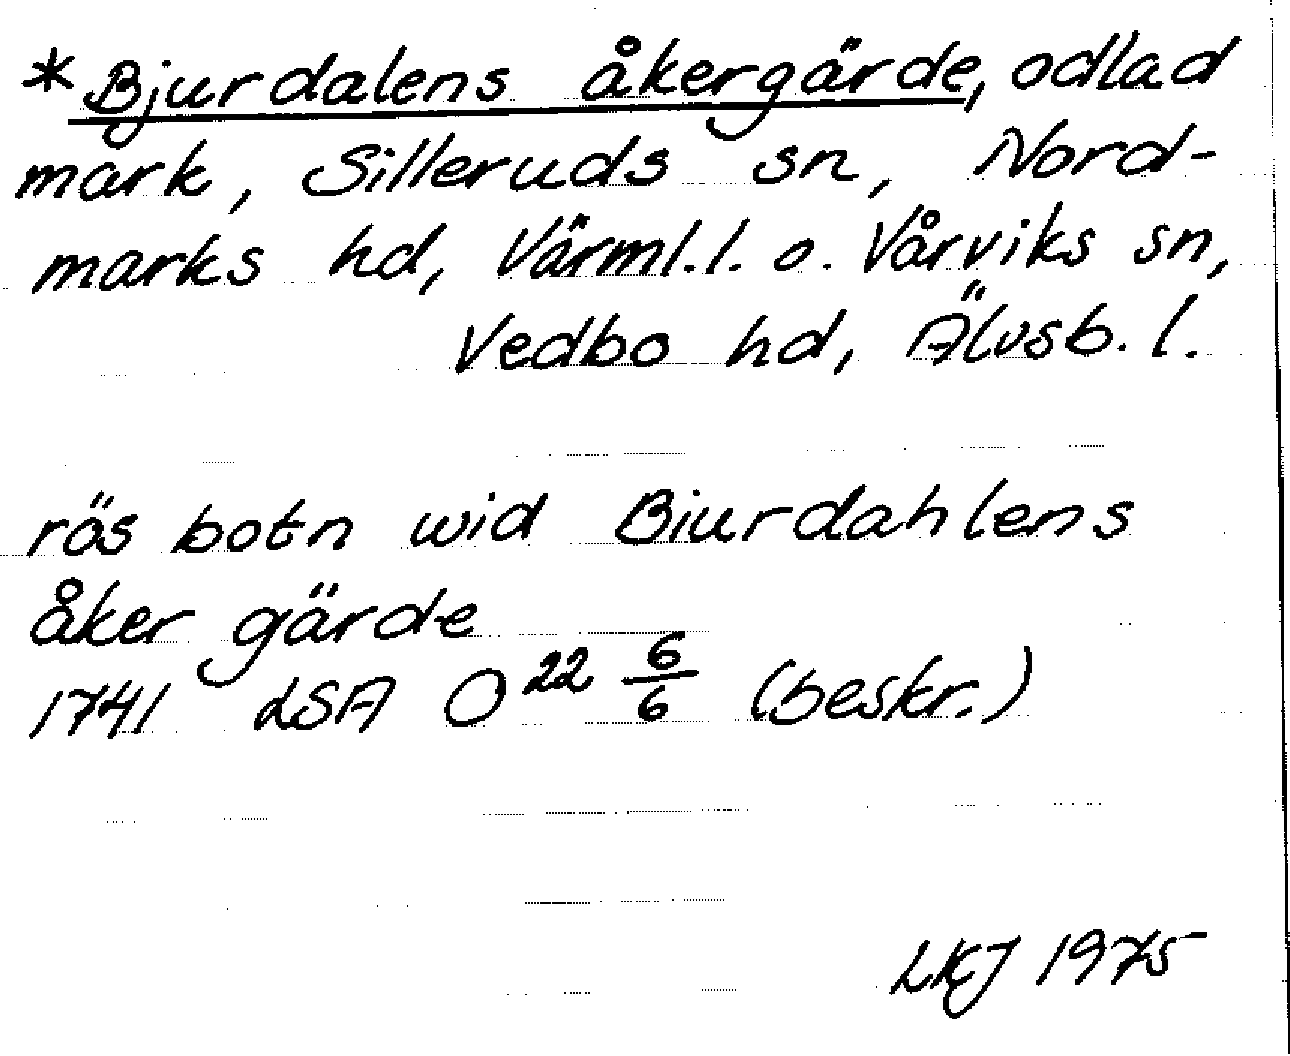 *Bjurdalens åkergärde, odlad
mark, Silleruds sn, Nord-
marks hd, Värml.l. o. Vårviks sn,
Vedbo hd, Älvsb. l.
rös botn wid Biurdahlens
åker gärde
1741 LSA O 22 6/6 (beskr.)
LKJ 1975